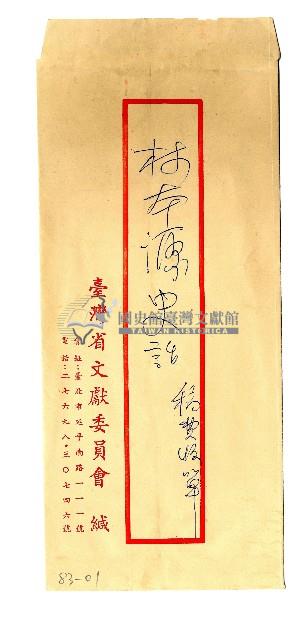 林本源史話
稿費收單
臺灣省文獻委員會 緘
會址:臺北市延平南路一一一號
電話:二七六九八·三〇七四六號
國史館臺灣文獻館
TAIWAN HISTORICA
83-01